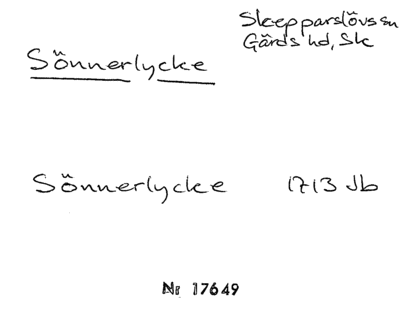 Skepparslövs sn
Gärds hd, Sk
Sönnerlycke
Sönnerlycke 1713 Jb
Nr 17649